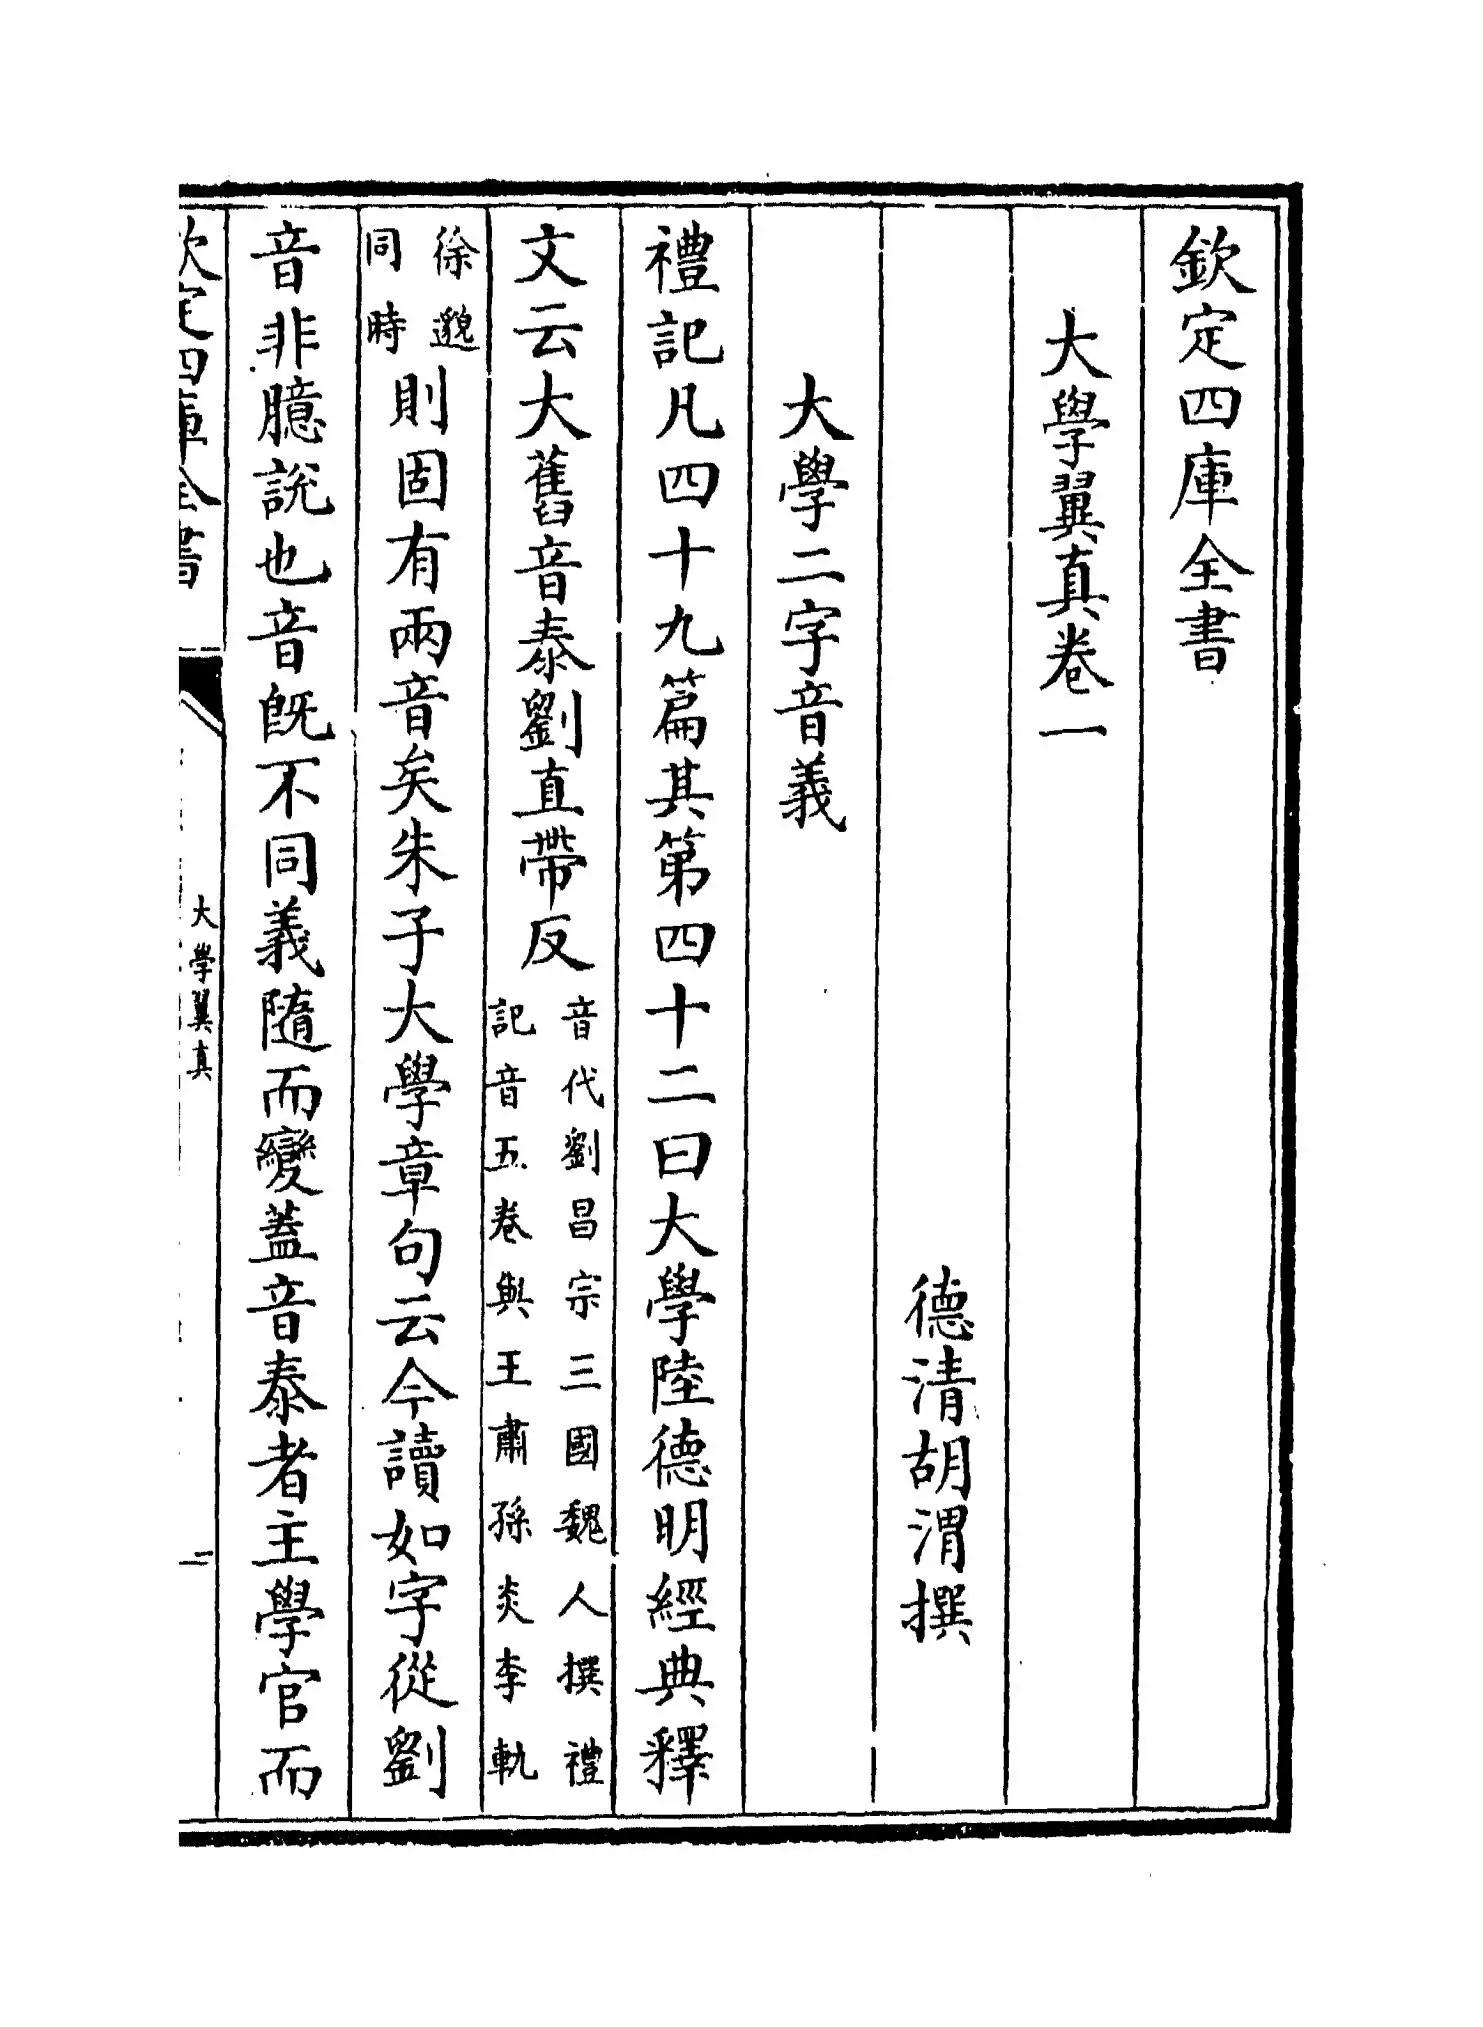 欽定四庫全書
大學翼真卷一
德清胡渭撰
大學二字音義
禮記凡四十九篇其第四十二曰大學陸德明經典釋
文云大舊音泰劉直帶反
音代劉昌宗三國魏人撰禮
記音五卷與王肅孫炎李軌
徐邈
同時
則固有兩音矣朱子大學章句云今讀如字從劉
音非臆說也音旣不同義隨而變蓋音泰者主學官而
欽定四庫全書
大學翼真
二